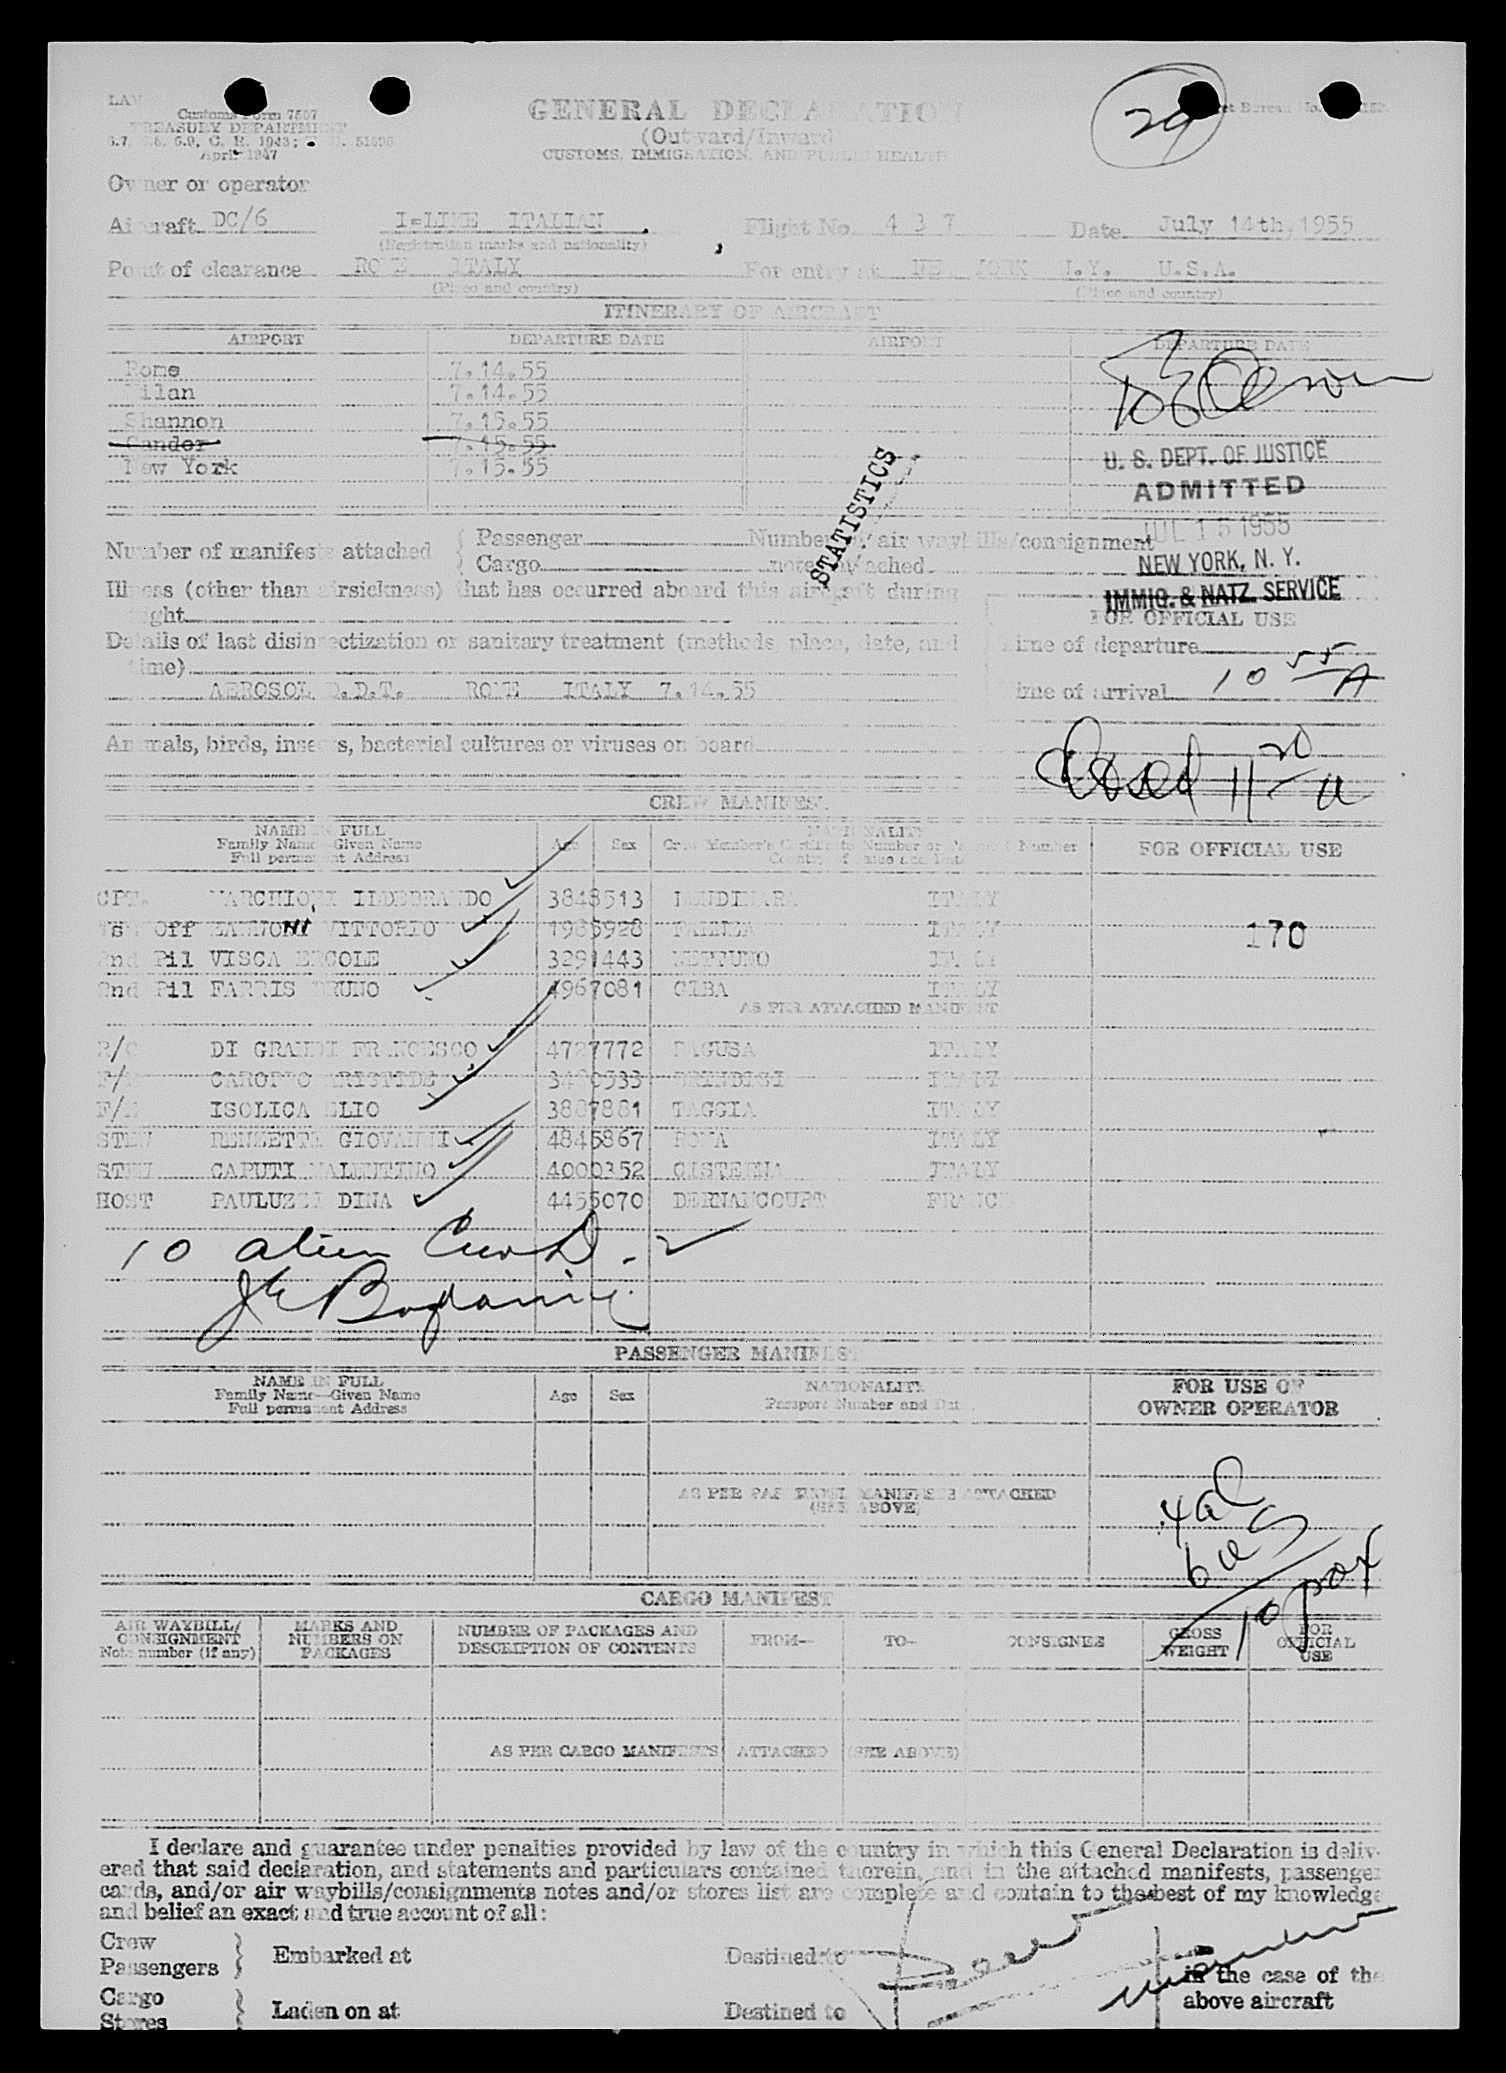 29
Customs Form 7507
TREASURY DEPARTMENT
April 1947
GENERAL DECLARATION
(Outward/Inward)
CUSTOMS, IMMIGRATION, AND PUBLIC HEALTH
Owner or operator
Aircraft DC/6 I=LINE ITALIAN Flight No. 4 3 7 Date July 14th, 1955
(Registration marks and nationality)
Point of clearance ROME ITALY For entry at NEW YORK N.Y. U.S.A.
(Place and country) (Place and country)
ITINERARY OF AIRCRAFT
AIRPORT DEPARTURE DATE AIRPORT DEPARTURE DATE
Rome 7.14.55
Milan 7.14.55
Shannon 7.15.55
Gander 7.15.55
New York 7.15.55
STATISTICS
U. S. DEPT. OF JUSTICE
ADMITTED
JUL 15 1955
NEW YORK, N. Y.
IMMIG. & NATZ. SERVICE
Number of manifests attached { Passenger Number of air waybills/consignment
Cargo notes attached
Illness (other than airsickness) that has occurred aboard this aircraft during
flight
FOR OFFICIAL USE
Details of last disinsectization or sanitary treatment (methods, place, date, and
time)
Time of departure
AEROSOL D.D.T. ROME ITALY 7.14.55
Time of arrival 10 55 A
Animals, birds, insects, bacterial cultures or viruses on board
Closed 11 20 a
CREW MANIFEST
NAME IN FULL Age Sex NATIONALITY FOR OFFICIAL USE
Family Name—Given Name
Full permanent Address
CPT. MARCHIONI ILDEBRANDO 3848513 LENDINARA ITALY
1st Off ZANNONI VITTORIO 1985928 FAENZA ITALY 170
2nd Pil VISCA ERCOLE 3291443 NETTUNO ITALY
2nd Pil FARRIS BRUNO 4967081 GIBA ITALY
AS PER ATTACHED MANIFEST
R/O DI GRANDI FRANCESCO 4727772 RAGUSA ITALY
CAROPPO ARISTIDE BRINDISI ITALY
ISOLICA ELIO 3887881 TAGGIA ITALY
STEW GIOVANNI 4845867 ROMA ITALY
STEW CAPUTI VALENTINO 4000352 CISTERNA ITALY
HOST PAULUZZI DINA 4455070 DERNANCOURT FRANCE
10 alien Crew D.
PASSENGER MANIFEST
NAME IN FULL Age Sex NATIONALITY FOR USE OF
Family Name—Given Name Passport Number and Date OWNER OPERATOR
Full permanent Address
AS PER PASSENGER MANIFESTS ATTACHED
(SEE ABOVE)
4 al
6 us
10 pax
CARGO MANIFEST
AIR WAYBILL/ MARKS AND NUMBER OF PACKAGES AND FROM— TO— CONSIGNEE GROSS FOR
CONSIGNMENT NUMBERS ON DESCRIPTION OF CONTENTS WEIGHT OFFICIAL
Note number (if any) PACKAGES USE
AS PER CARGO MANIFESTS ATTACHED (SEE ABOVE)
I declare and guarantee under penalties provided by law of the country in which this General Declaration is deliv-
ered that said declaration, and statements and particulars contained therein, and in the attached manifests, passenger
cards, and/or air waybills/consignments notes and/or stores list are complete and contain to the best of my knowledge
and belief an exact and true account of all:
Crew
Passengers } Embarked at Destined to in the case of the
Cargo above aircraft
Stores } Laden on at Destined to